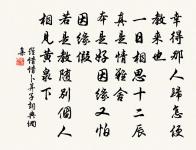 幸得那人歸怎便
教來也
一日相思十二辰
真是情難舍
本是好因緣又怕
因緣假
若是教隨別個人
相見黃泉下
羅惜惜卜算子詞典網
集